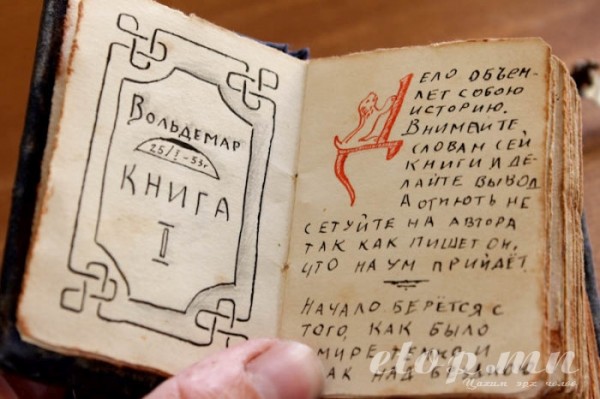 Вольдемар
25/I-53г
КНИГА
II
ДЕЛО ОБЪЕМ-
ЛЕТ СОБОЮ
ИСТОРИЮ.
ВНИМАЙТЕ
СЛОВАМ СЕЙ
КНИГИ И ДЕ-
ЛАЙТЕ ВЫВОД
А ОТНЮТЬ НЕ
СЕТУЙТЕ НА АВТОРА
ТАК КАК ПИШЕТ ОН,
ЧТО НА УМ ПРИЙДЁТ.
НАЧАЛО БЕРЁТСЯ С
ТОГО, КАК БЫЛО
В МИРЕ ТЕМНО И
КАК НАД БЕЗДНОЙ
etop.mn
Цахим өрх чөлөө